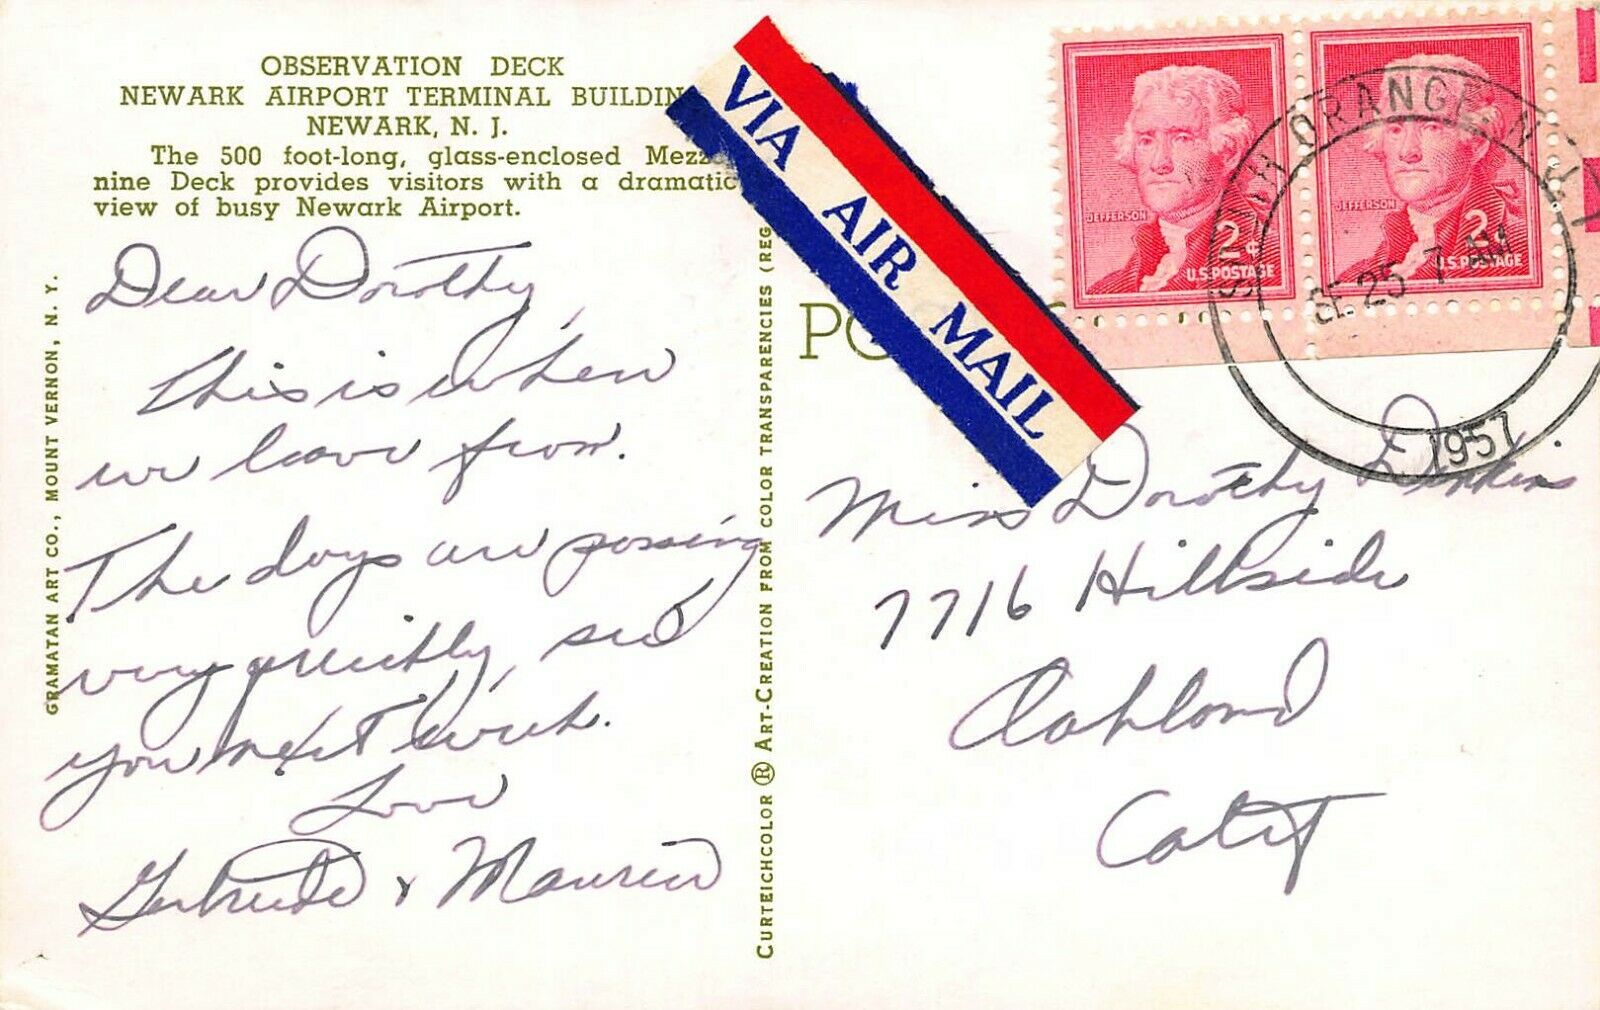 OBSERVATION DECK
NEWARK AIRPORT TERMINAL BUILDIN
NEWARK, N. J.
The 500 foot-long, glass-enclosed Mezza
nine Deck provides visitors with a dramatic
view of busy Newark Airport.
Dear Dorothy,
This is when
we leave from.
The days are passing
very quickly, see
you next week.
Love
Gertrude & Maurice
GRAMATAN ART CO., MOUNT VERNON, N. Y.
CURTEICHCOLOR ® ART-CREATION FROM COLOR TRANSPARENCIES (REG
VIA AIR MAIL
PO
JEFFERSON
2¢
U.S. POSTAGE
JEFFERSON
2
U.S. POSTAGE
SOUTH ORANGE, N.J.
SE 25 7 AM
1957
Miss Dorothy
7716 Hillside
Oakland
Calif